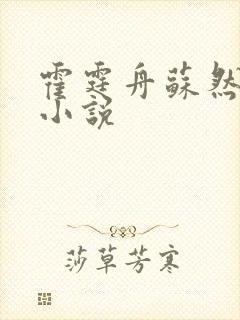 霍霆舟蘇然
小說
莎草芳寒